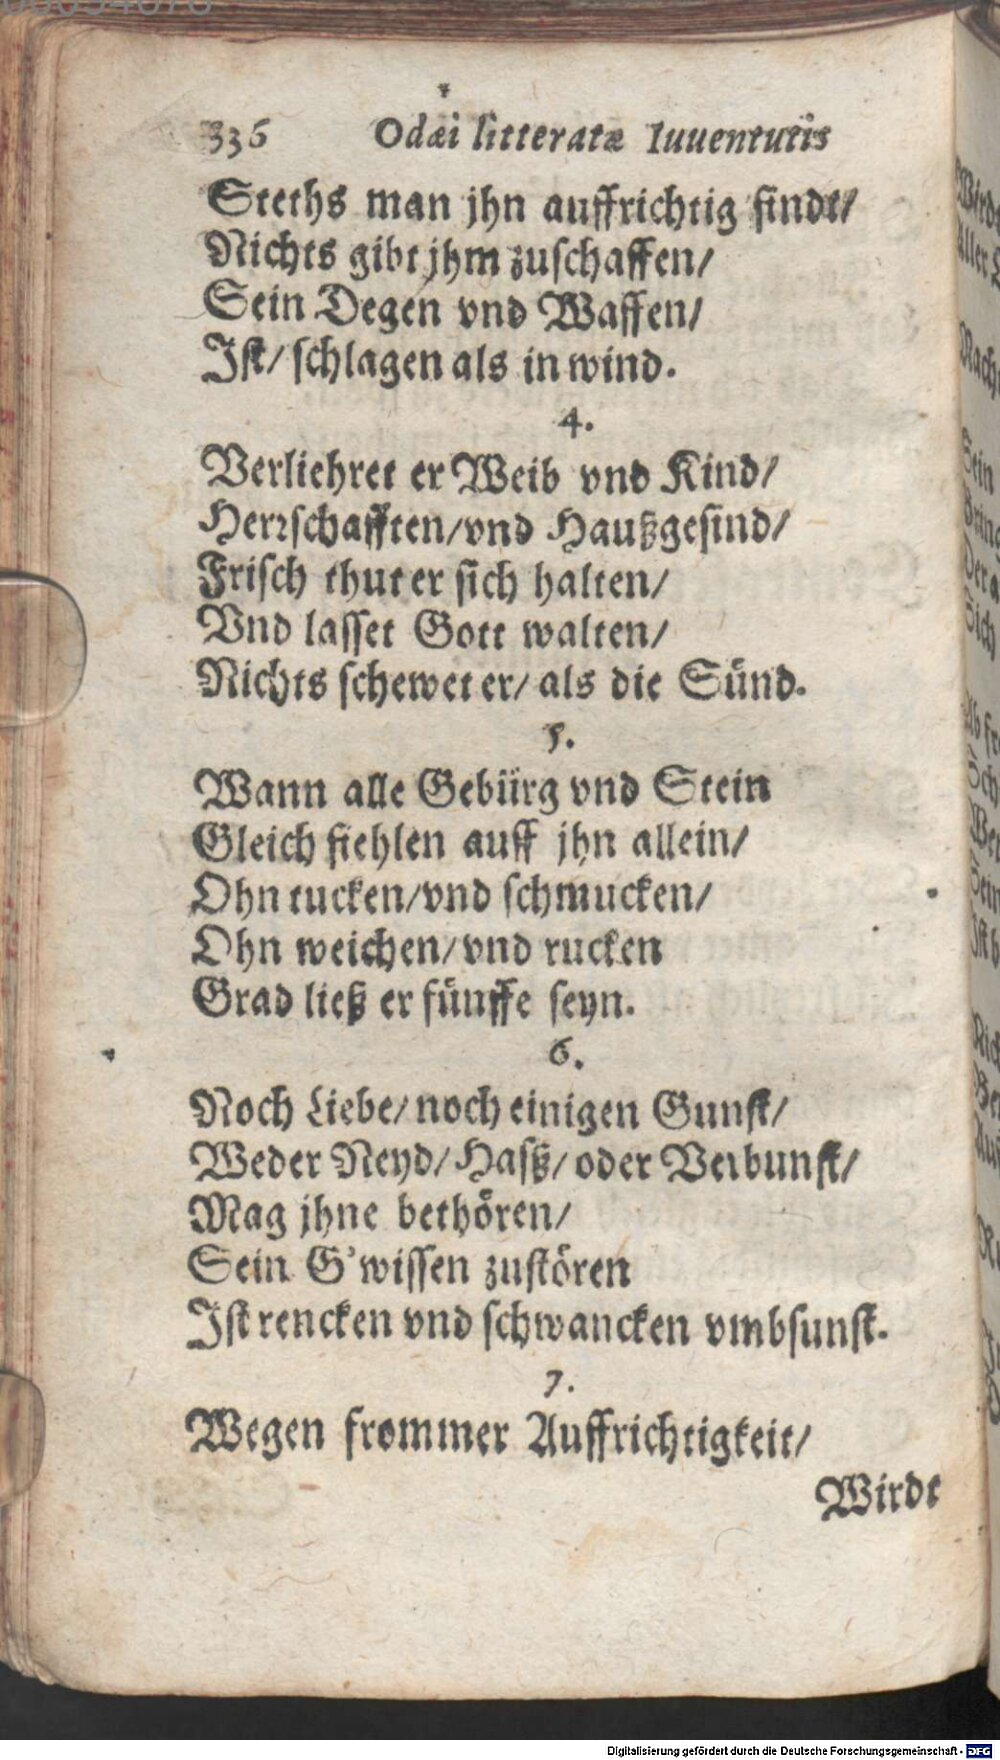 336 Odæi litteratæ Iuuentutis
Steths man jhn auffrichtig findt/
Nichts gibt jhm zuschaffen/
Sein Degen vnd Waffen/
Jst/ schlagen als in wind.
4.
Verliehret er Weib vnd Kind/
Herrschafften/ vnd Haußgesind/
Frisch thut er sich halten/
Vnd lasset Gott walten/
Nichts schewet er/ als die Sünd.
5.
Wann alle Gebürg vnd Stein
Gleich fiehlen auff jhn allein/
Ohn tucken/ vnd schmucken/
Ohn weichen/ vnd rucken
Grad ließ er fünffe seyn.
6.
Noch Liebe/ noch einigen Gunst/
Weder Neyd/ Hasß/ oder Verbunst/
Mag jhne bethören/
Sein G'wissen zustören
Jst rencken vnd schwancken vmbsunst.
7.
Wegen frommer Auffrichtigkeit/
Wirdt
Digitalisierung gefördert durch die Deutsche Forschungsgemeinschaft - DFG